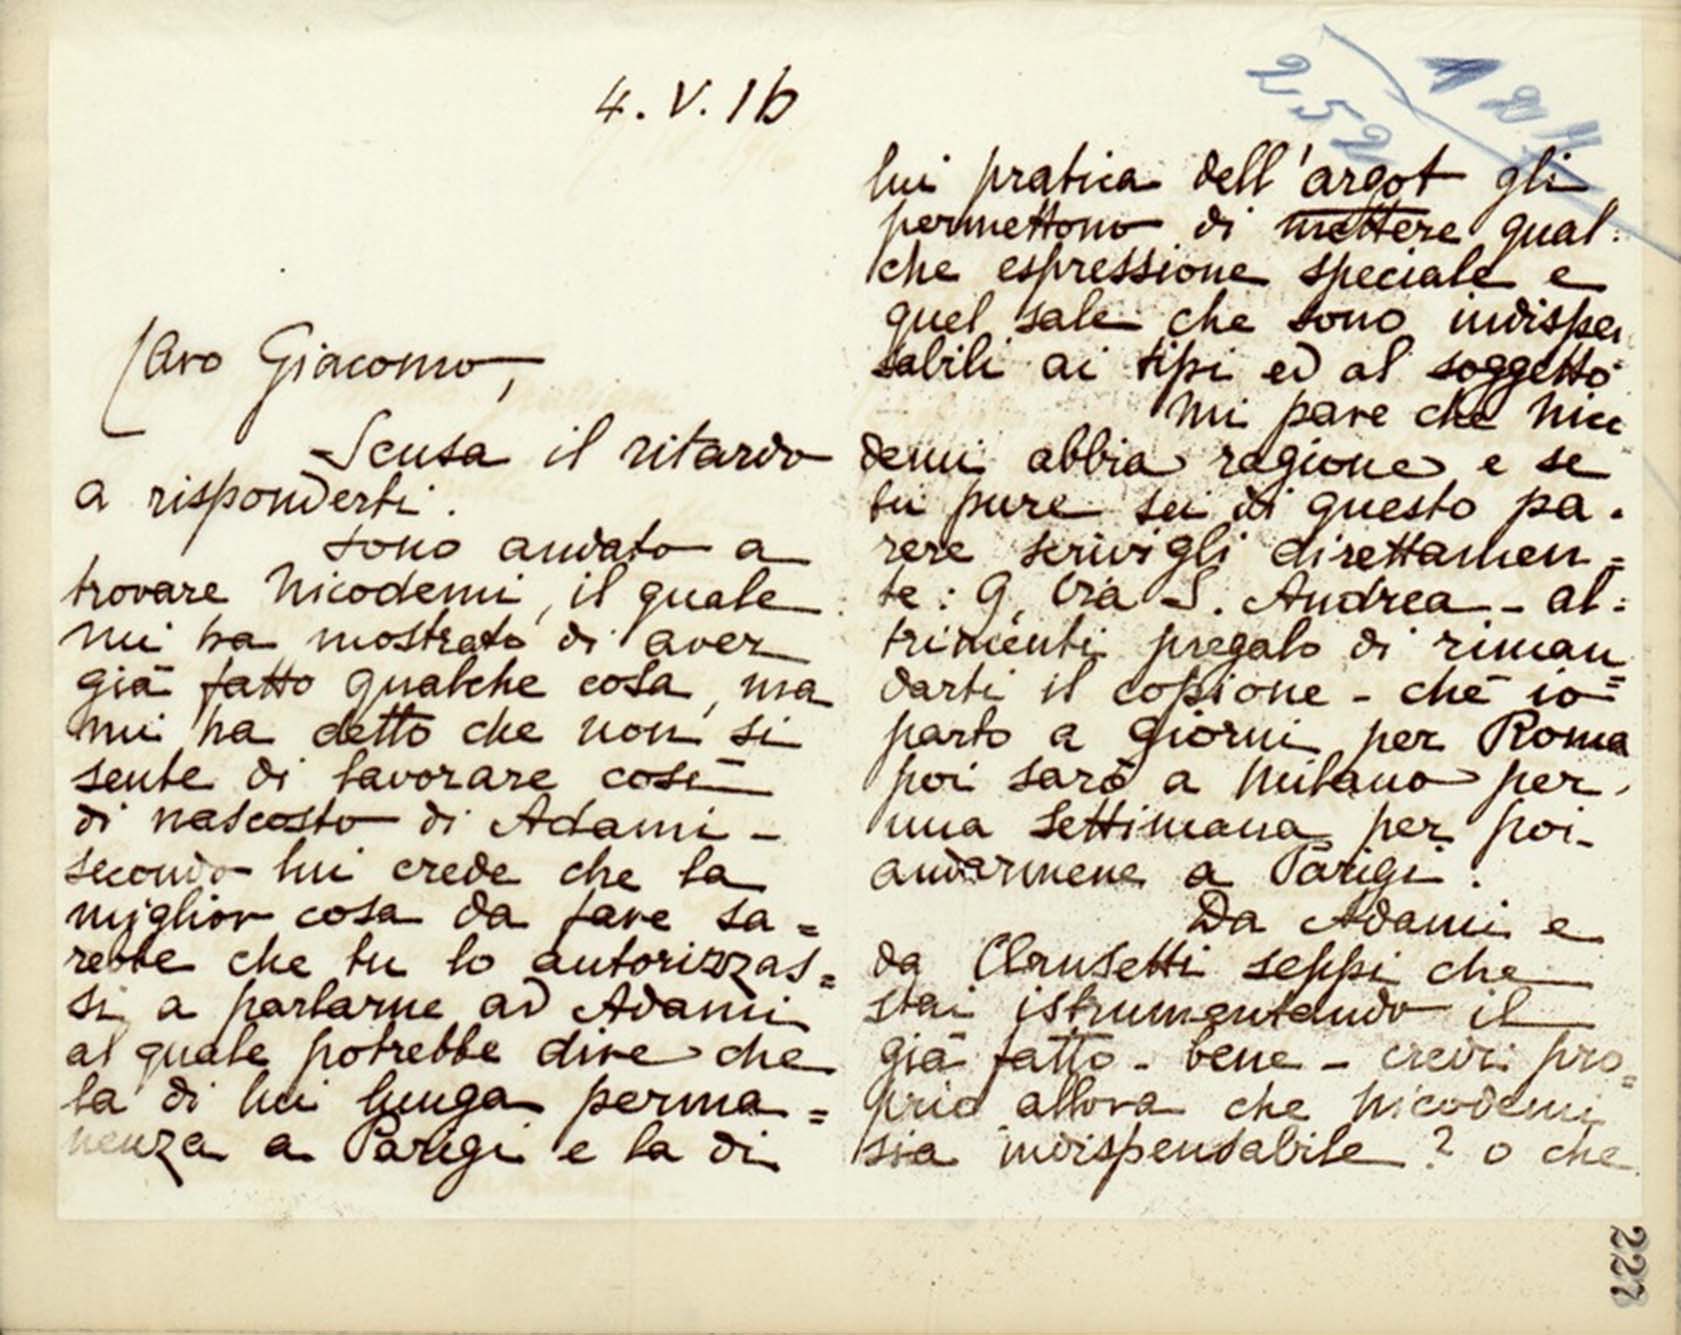 4. V. 16
Caro Giacomo,
Scusa il ritardo
a risponderti.
Sono andato a
trovare Nicodemi, il quale
mi ha mostrato di aver
già fatto qualche cosa, ma
mi ha detto che non si
sente di lavorare così
di nascosto di Adami -
secondo lui crede che la
miglior cosa da fare sa=
rebbe che tu lo autorizzas=
si a parlarne ad Adami
al quale potrebbe dire che
la di lui lunga perma=
nenza a Parigi e la di
lui pratica dell'argot gli
permettono di mettere qual:
che espressione speciale e
quel sale che sono indispen
sabili ai tipi ed al soggetto
Mi pare che Nico
demi abbia ragione e se
tu pure sei di questo pa.
rere scrivigli direttamen=
te: 9, Via S. Andrea - al:
trimenti pregalo di riman
darti il copione - chè io
parto a giorni per Roma
poi sarò a Milano per
una settimana per poi
andarmene a Parigi.
Da Adami e
da Clausetti seppi che
stai istrumentando il
già fatto - bene - credi pro=
prio allora che Nicodemi
sia indispensabile? o che
227